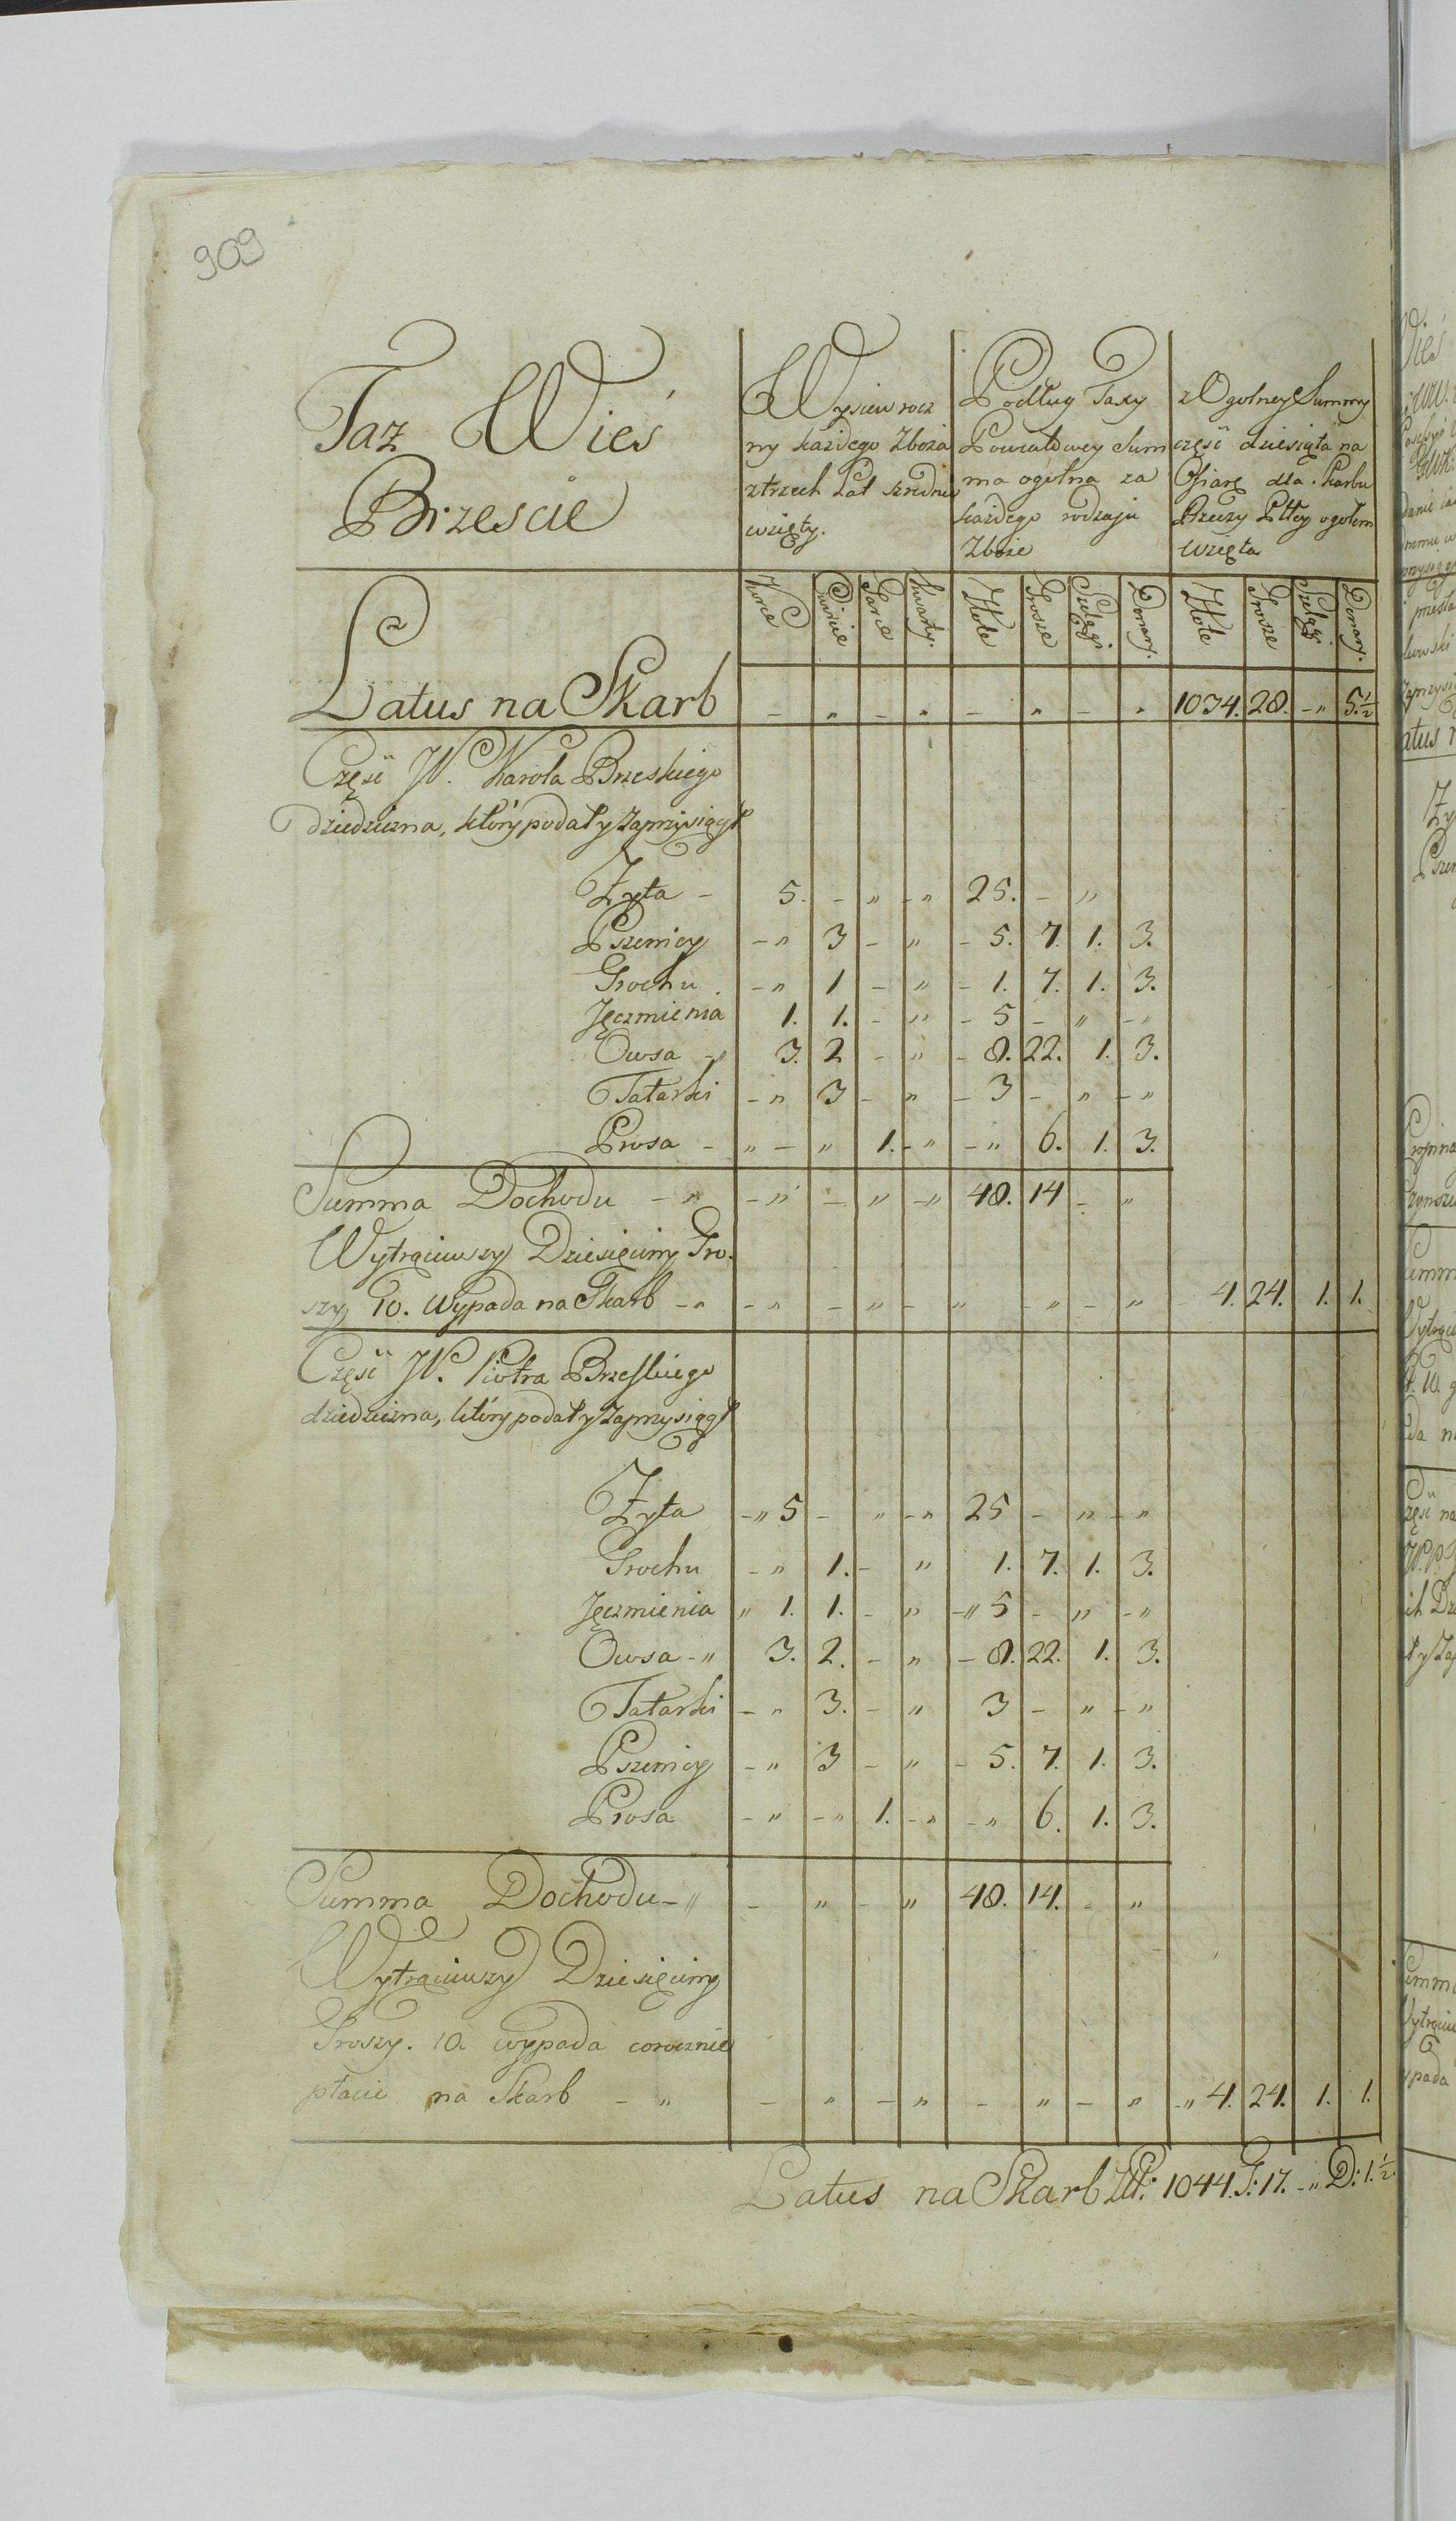 909
Taz Wieś
Brzescie
Wysiew rocz
ny każdego Zboża
z trzech Lat szrednie
wzięty.
Podług Taxy
Powiatowey Sum
ma ogolna za
każdego rodzaju
Zboże
z Ogolney Summy
częsć dziesięta na
Ofiarę dla Skarbu
Rzeczy Pltey ogołem
wzięta
Korce Cwircie Garce Kwarty. Złote Grosze Szelągi Denary. Złote Grosze Szelągi Denary.
Latus na Skarb - „ - „ - „ - „ 1034. 28. - „ 5½
Częsć W. Karola Brzeskiego
dziedziczna, który podał y zaprzysiągł
Żyta - 5. - „ - „ 25. - „
Pszenicy - „ 3 - „ - 5. 7. 1. 3.
Grochu . - „ 1 - „ - 1. 7. 1. 3.
Jęczmienia 1. 1. - „ - 5 - „ - „
Owsa - „ 3. 2 - „ - 8. 22. 1. 3.
Tatarki - „ 3 - „ - 3 - „ - „
Prosa - „ - „ 1. - „ - „ 6. 1. 3.
Summa Dochodu - „ - „ - „ - „ 48. 14 - „
Wytrąciwszy Dziesięciny Gro-
szy 10. Wypada na Skarb - „ - „ - „ - „ - „ - „ - 4. 24. 1. 1.
Częsć W. Piotra Brzeskiego
dziedziczna, który podał y zaprzysiągł
Żyta - „ 5 - „ - „ 25 - „ - „
Grochu - „ 1. - „ 1. 7. 1. 3.
Jęczmienia „ 1. 1. - „ - „ 5 - „ - „
Owsa - „ 3. 2. - „ - 8. 22. 1. 3.
Tatarki - „ 3. - „ 3 - „ - „
Pszenicy - „ 3 - „ - 5. 7. 1. 3.
Prosa - „ - „ 1. - „ - „ 6. 1. 3.
Summa Dochodu - „ - „ - „ 48. 14. - „
Wytrąciwszy Dziesięciny
Groszy. 10. wypada corocznie
płacić na Skarb - „ - „ - „ - „ - „ - „ 4. 24. 1. 1.
Latus na Skarb Złł: 1044. G: 17. - „ D: 1.½